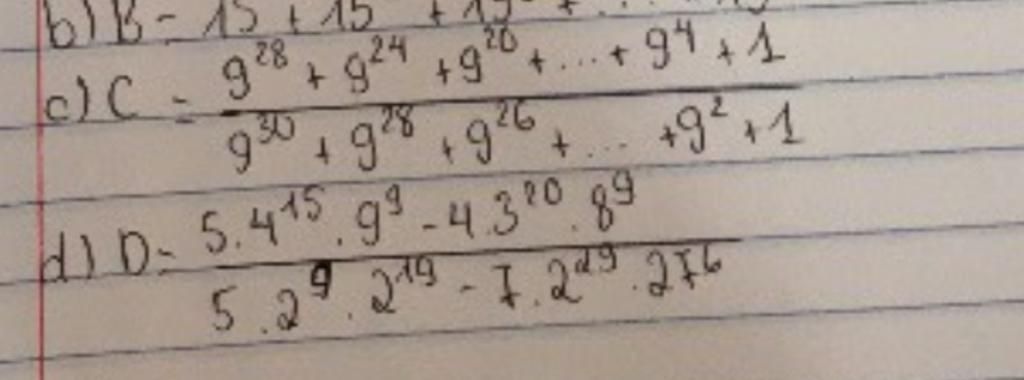 b) B = 15 + 15 + 15 + ...
c) C = \frac{9^{28} + 9^{24} + 9^{20} + ... + 9^4 + 1}{9^{30} + 9^{28} + 9^{26} + ... + 9^2 + 1}
d) D = \frac{5.4^{15}.9^9 - 4.3^{20}.8^9}{5.2^9.2^{19} - 7.2^{29}.27^6}